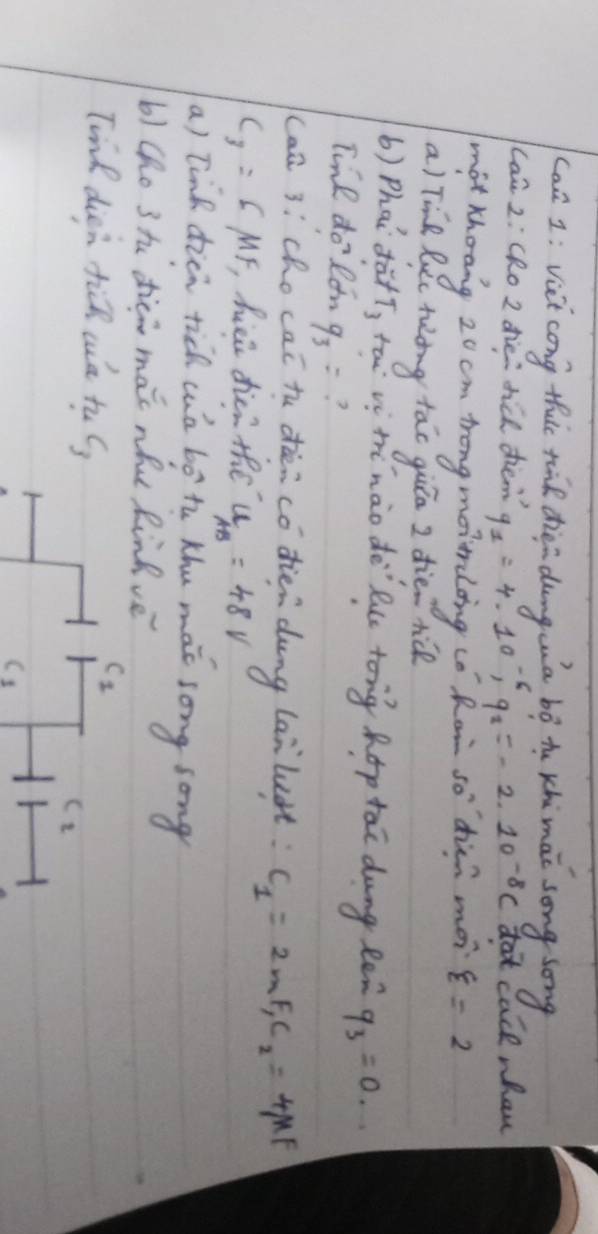 Câu 1: Viết công thức tính điện dung của bộ tụ khi mắc song song
Câu 2: Cho 2 điện tích điểm q₁ = 4.10⁻⁶, q₂ = -2.10⁻⁸C đặt cách nhau
một khoảng 20 cm trong môi trường có hằn số điện môi ε = 2
a) Tính lực tương tác giữa 2 điện tích
b) Phải đặt q₃ tại vị trí nào để lực tổng hợp tác dụng lên q₃ = 0...
Tính độ lớn q₃ = ?
Câu 3: Cho các tụ điện có điện dung lần lượt: C₁ = 2mF, C₂ = 4µF
C₃ = 6 µF, hiệu điện thế U_AB = 48V
a) Tính điện tích của bộ tụ khi mắc song song
b) Cho 3 tụ điện mắc như hình vẽ
Tính điện tích của tụ C₃
C₂
C₁ C₂